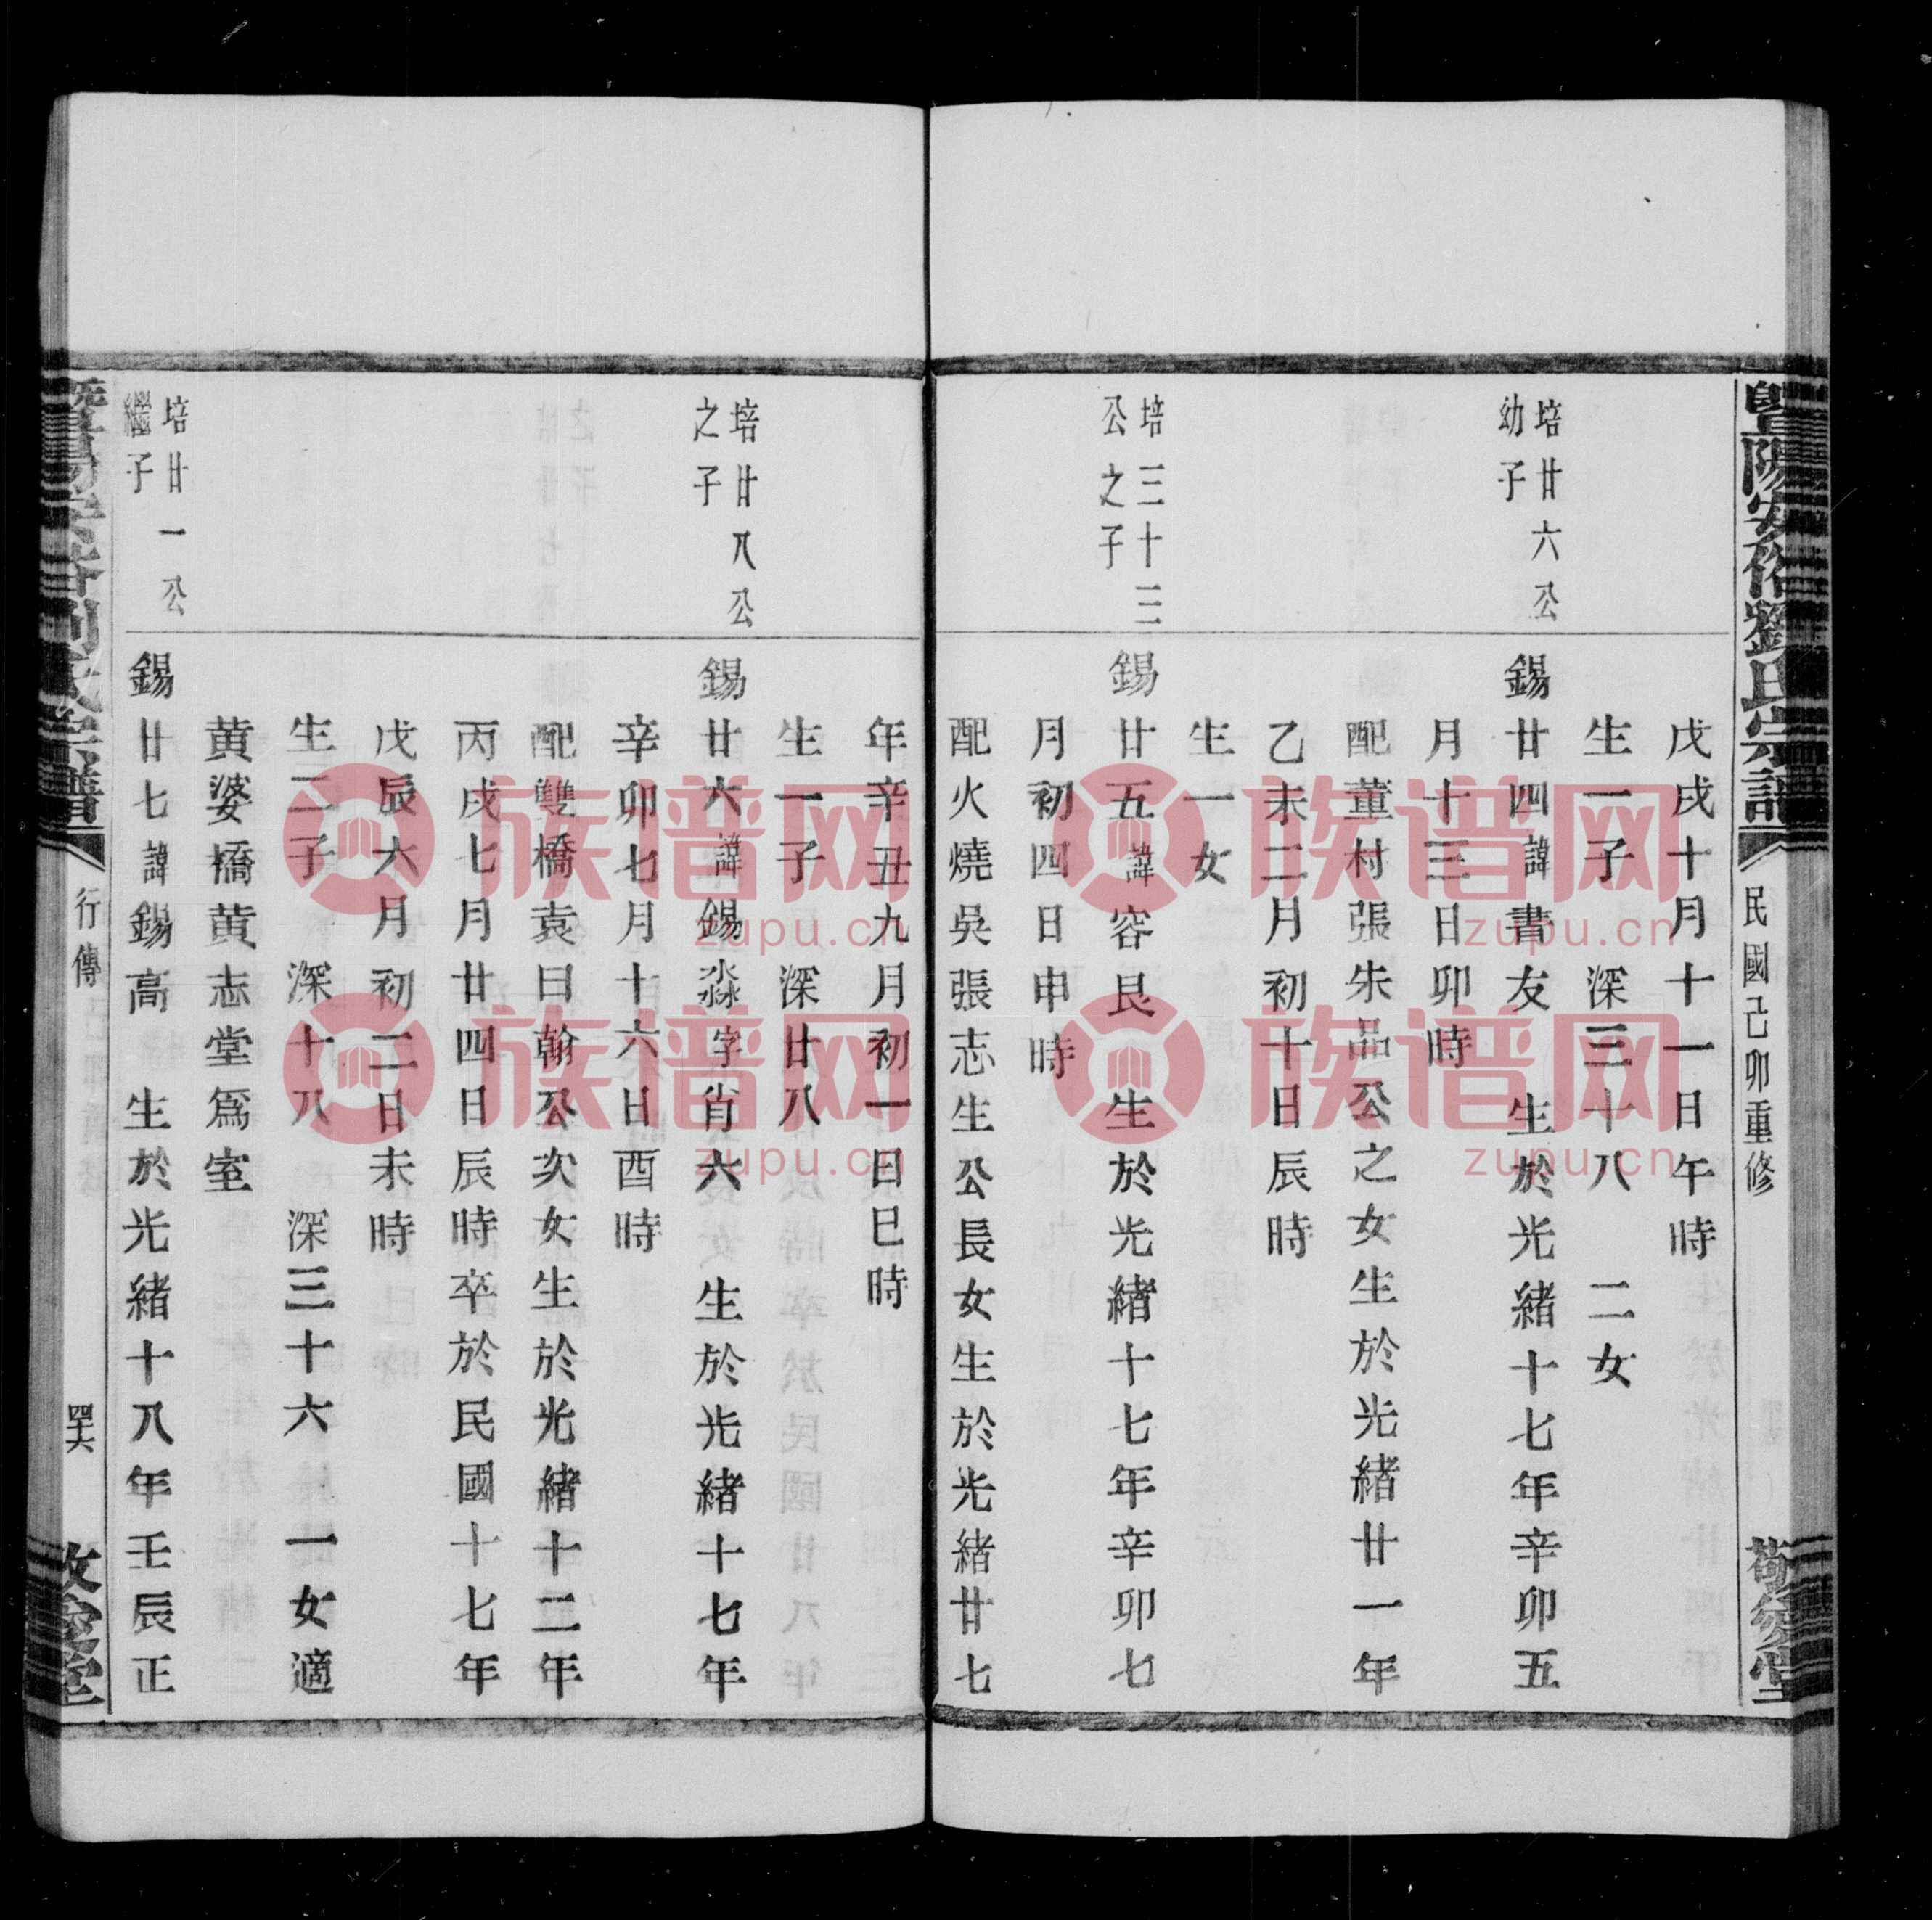 暨陽安俗劉氏宗譜
民國己卯重修
敬愛堂
戊戌十月十一日午時
生一子 深三十八 二女
培廿六公
幼子
錫廿四諱書友 生於光緒十七年辛卯五
月十三日卯時
配董村張朱品公之女生於光緒廿一年
乙未二月初十日辰時
生一女
培三十三
公之子
錫廿五諱容艮 生於光緒十七年辛卯七
月初四日申時
配火燒吳張志生公長女生於光緒廿七
年辛丑九月初一日巳時
生一子 深廿八
培廿八公
之子
錫廿六諱錫淼字肖六 生於光緒十七年
辛卯七月十六日酉時
配雙橋袁曰翰公次女生於光緒十二年
丙戌七月廿四日辰時卒於民國十七年
戊辰六月初二日未時
生二子 深十八 深三十六 一女適
黄婆橋黄志堂爲室
培廿一公
繼子
錫廿七諱錫高 生於光緒十八年壬辰正
行傳
四十六
族谱网
zupu.cn
族谱网
zupu.cn
族谱网
zupu.cn
族谱网
zupu.cn